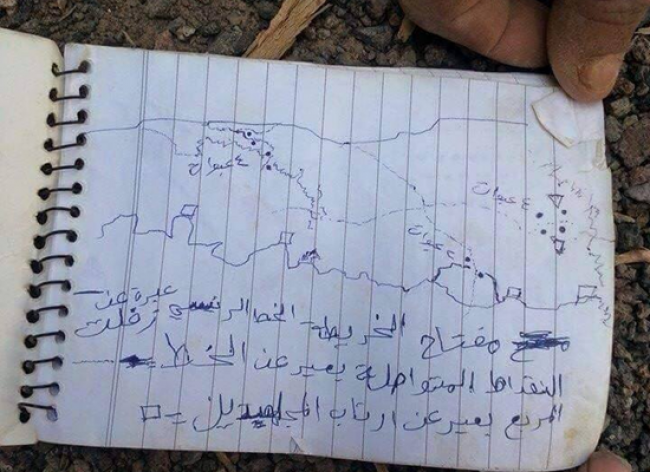 ٤ عبوات
عبوات ٤
عبوات
مفتاح الخريطة - الخط الرئيسي عبرة عن زفلت
المتواصلة يعبر عن الخط
المربع يعبر عن المجاهدين =